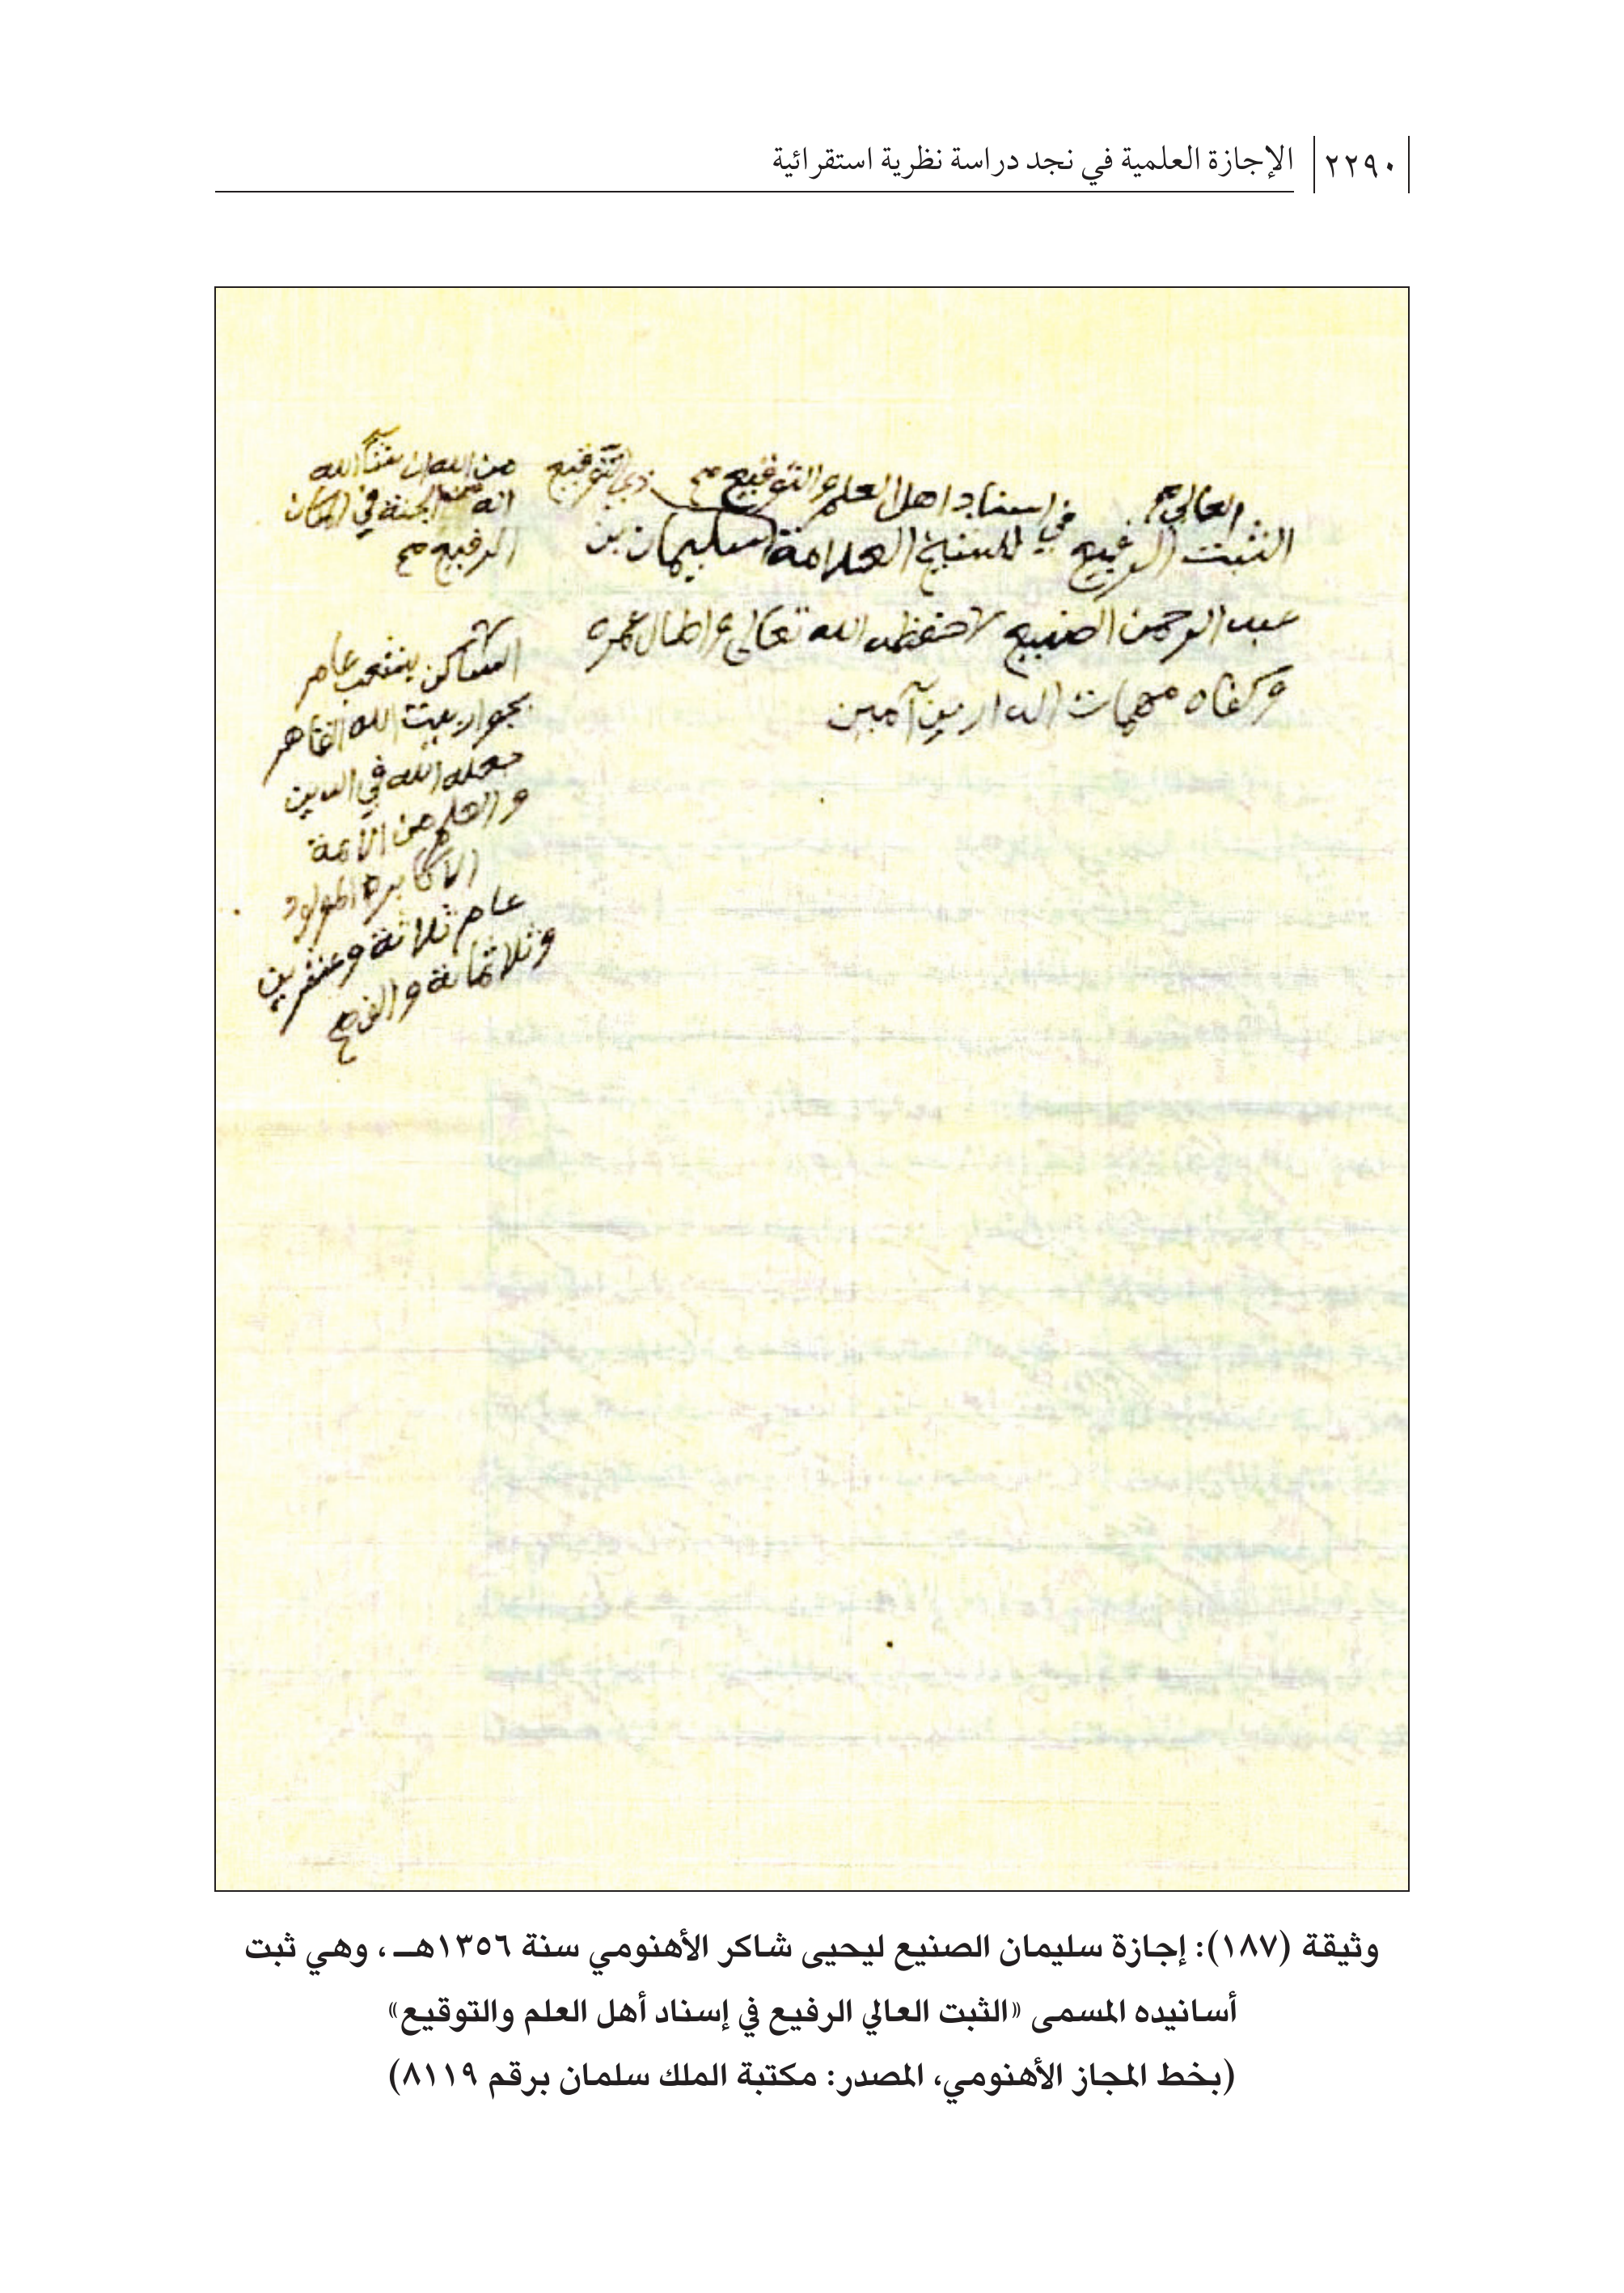 ٢٢٩٠ الإجازة العلمية في نجد دراسة نظرية استقرائية
العالي صح في اسناد اهل العلم والتوقيع صح
الثبت الرفيع للشيخ العلامة سليمان بن
عبد الرحمن الصنيع حفظه الله تعالى واطال عمره
وكفاه مهمات الدارين آمين
من الله ان شاء الله
انه من الجنة في المكان
الرفيع صح
الساكن بشعب عامر
بجوار بيت الله القاهر
جعله الله في الدين
والعلم من الائمة
الاكابر المولود
عام ثلاثة وعشرين
وثلاثمائة والف صح
وثيقة (١٨٧): إجازة سليمان الصنيع ليحيى شاكر الأهنومي سنة ١٣٥٦هـ، وهي ثبت
أسانيده المسمى «الثبت العالي الرفيع في إسناد أهل العلم والتوقيع»
(بخط المجاز الأهنومي، المصدر: مكتبة الملك سلمان برقم ٨١١٩)